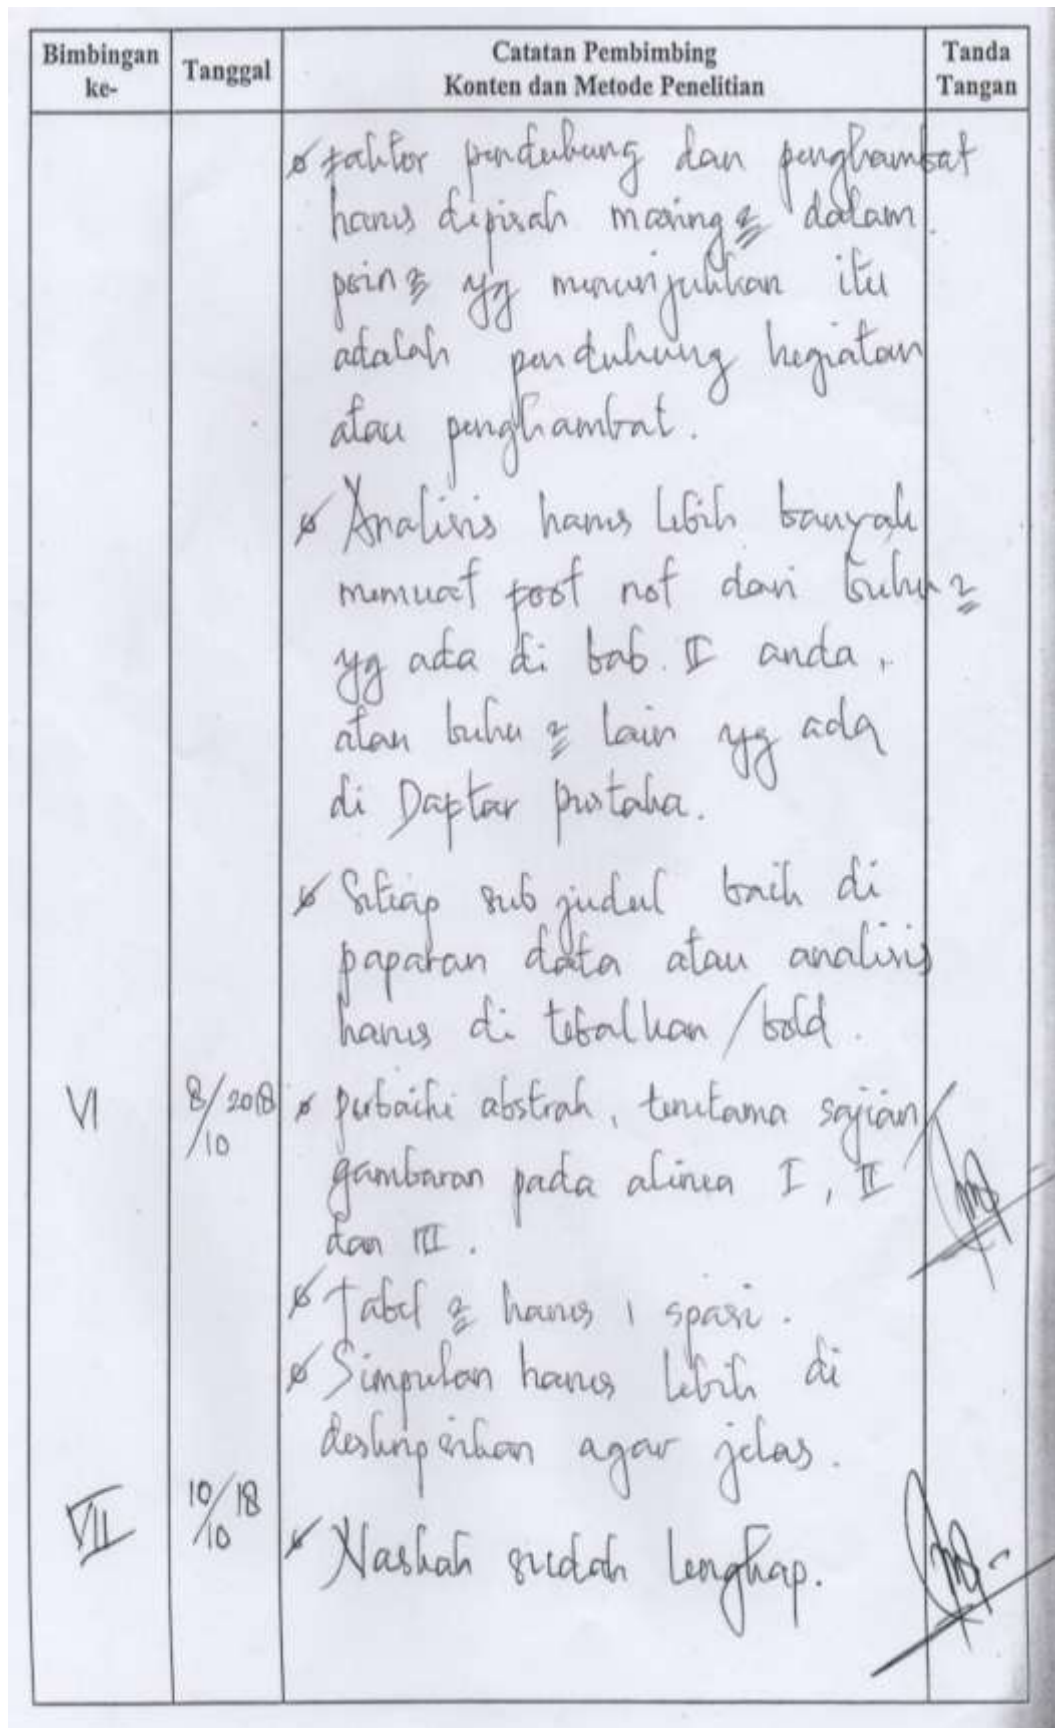 Bimbingan ke-
Tanggal
Catatan Pembimbing
Konten dan Metode Penelitian
Tanda Tangan
faktor pendukung dan penghambat
harus dipisah masing2 dalam
poin2 yg menunjukkan itu
adalah pendukung kegiatan
atau penghambat.
Analisis harus lebih banyak
memuat foot not dari buku2
yg ada di bab. II anda,
atau buku2 lain yg ada
di Daftar pustaka.
Setiap sub judul baik di
paparan data atau analisis
harus di tebalkan / bold.
VI 8/10 2018 perbaiki abstrak, terutama sajian
gambaran pada alinea I, II
dan III.
Tabel2 harus 1 spasi.
Simpulan harus lebih di
deskripsikan agar jelas.
VII 10/10 18
Naskah sudah lengkap.